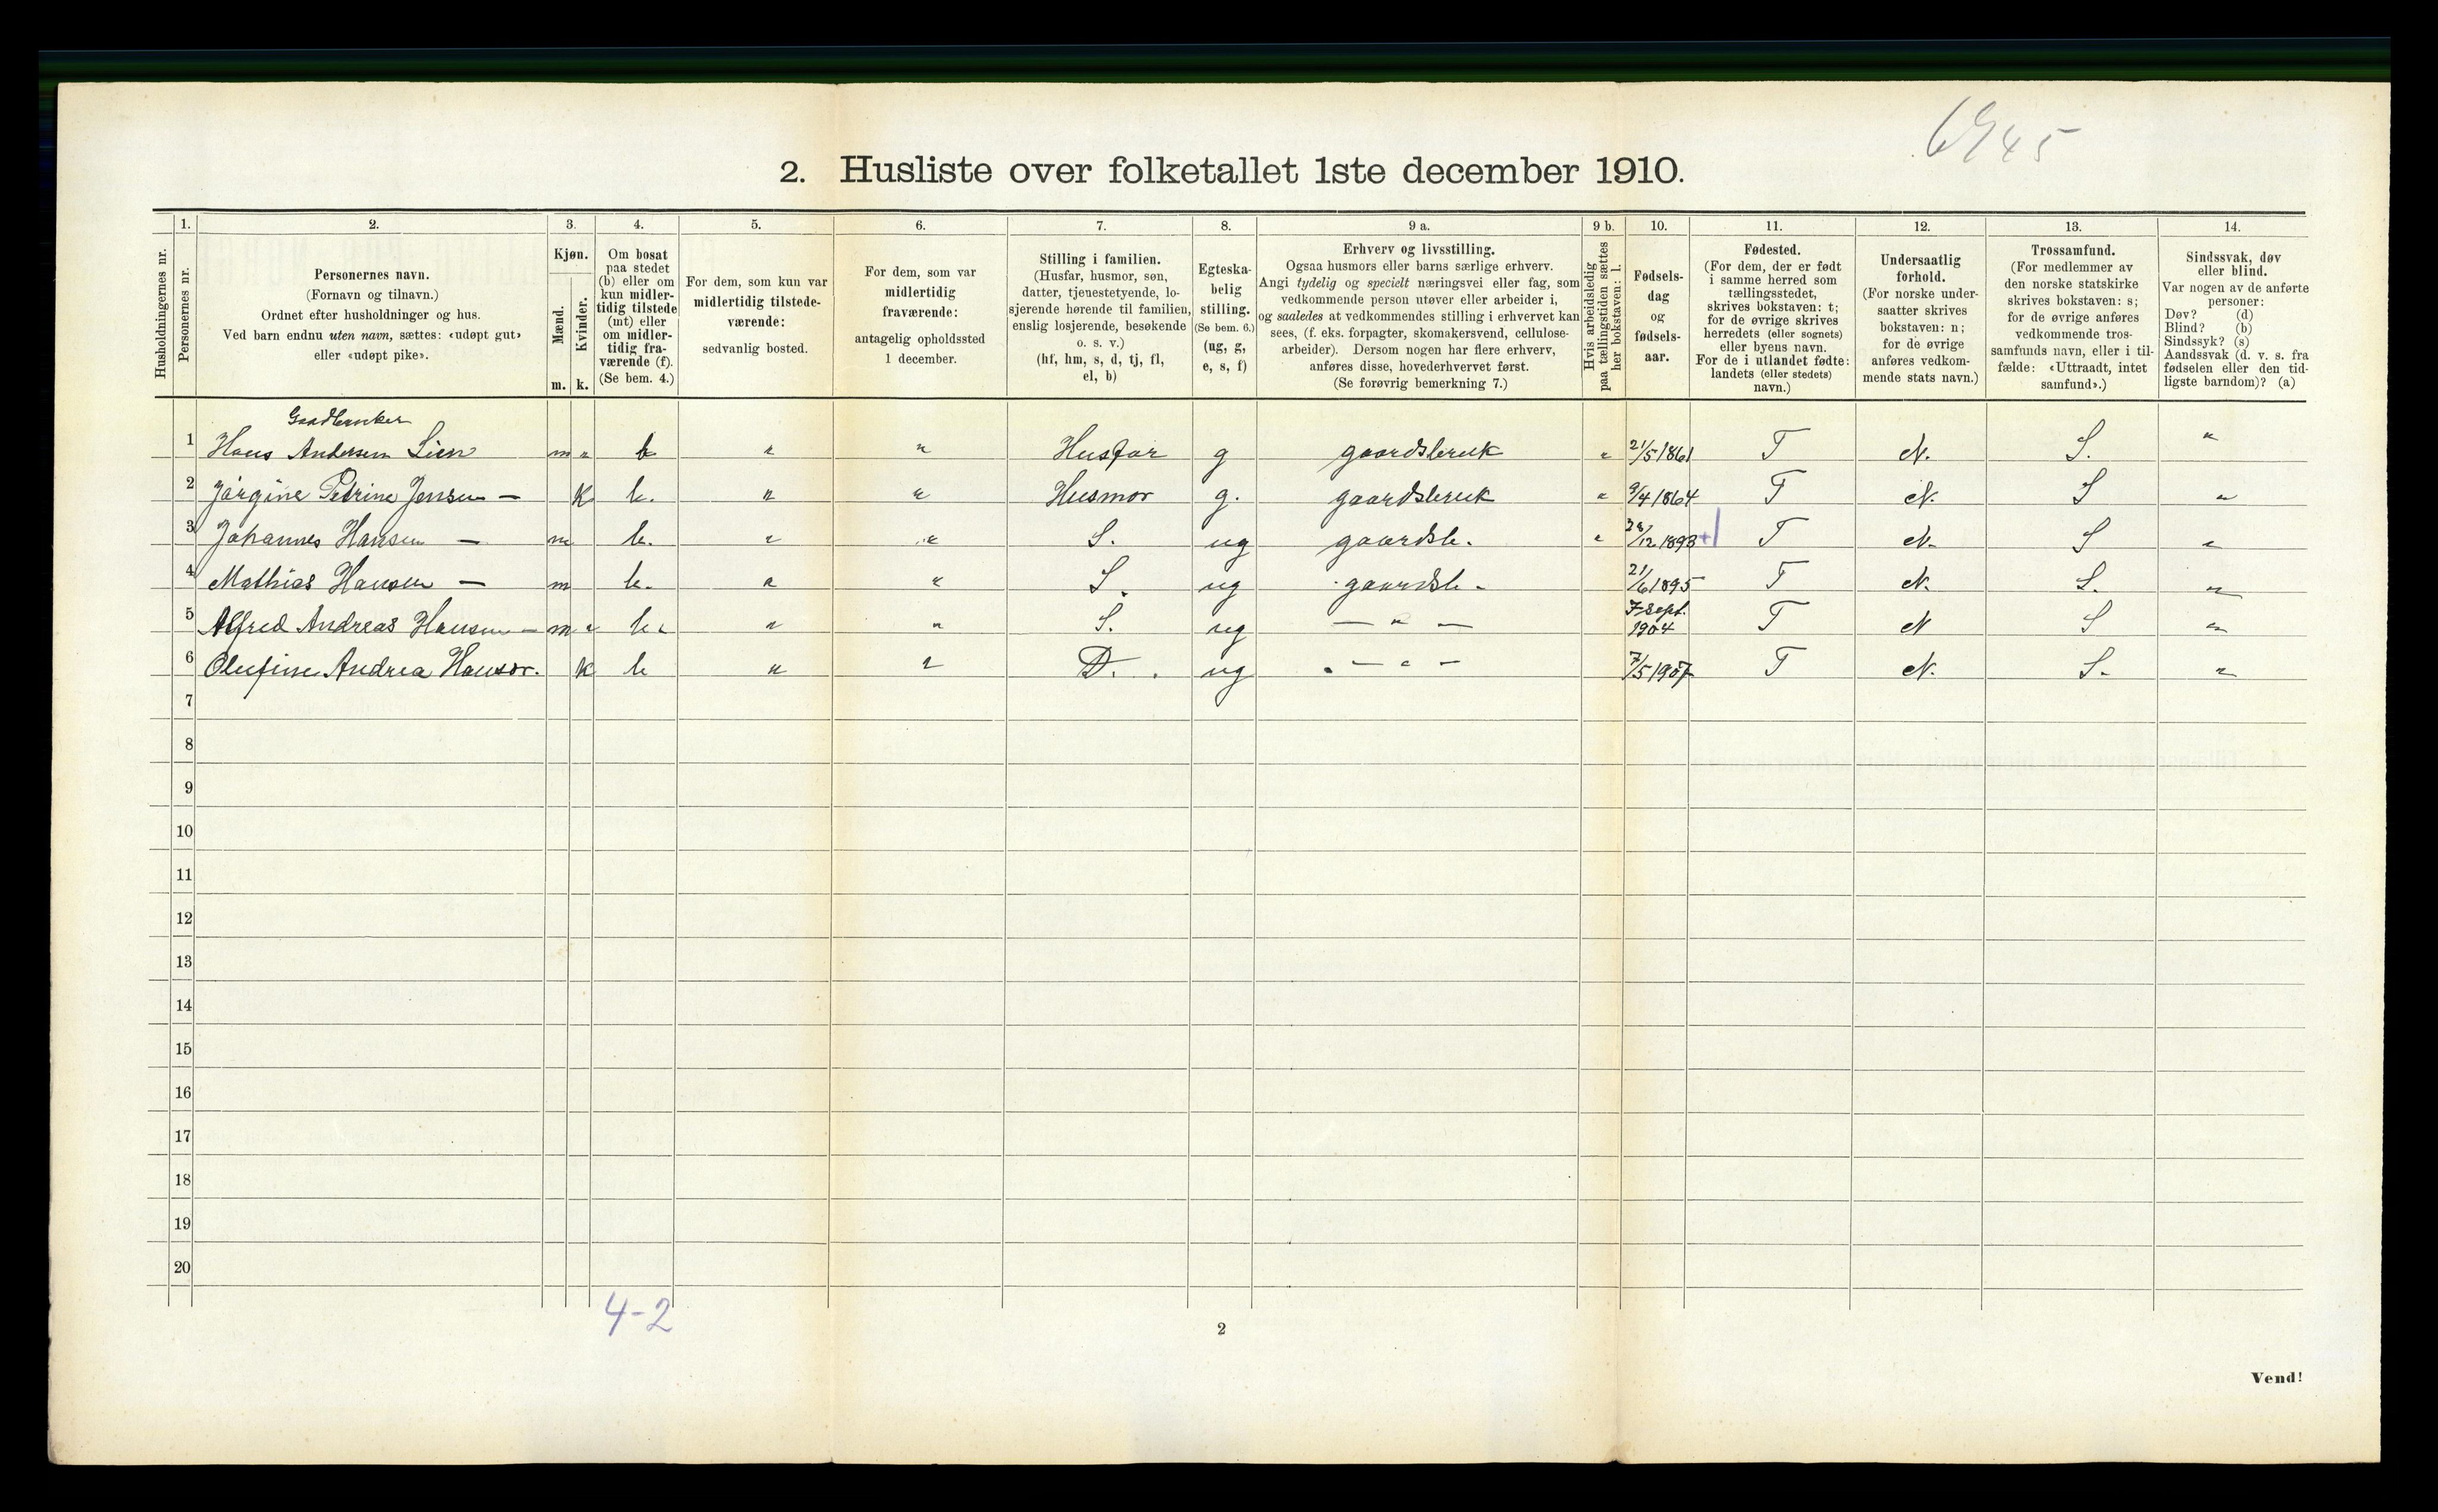 6945
2. Husliste over folketallet 1ste december 1910.
Husholdningernes nr.
1.
Personernes nr.
2.
Personernes navn.
(Fornavn og tilnavn.)
Ordnet efter husholdninger og hus.
Ved barn endnu uten navn, sættes: «udøpt gut»
eller «udøpt pike».
3.
Kjøn.
Mænd.
Kvinder.
m. k.
4.
Om bosat
paa stedet
(b) eller om
kun midler-
tidig tilstede
(mt) eller
om midler-
tidig fra-
værende (f).
(Se bem. 4.)
5.
For dem, som kun var
midlertidig tilstede-
værende:
sedvanlig bosted.
6.
For dem, som var
midlertidig
fraværende:
antagelig opholdssted
1 december.
7.
Stilling i familien.
(Husfar, husmor, søn,
datter, tjenestetyende, lo-
sjerende hørende til familien,
enslig losjerende, besøkende
o. s. v.)
(hf, hm, s, d, tj, fl,
el, b)
8.
Egteska-
belig
stilling.
(Se bem. 6.)
(ug, g,
e, s, f)
9 a.
Erhverv og livsstilling.
Ogsaa husmors eller barns særlige erhverv.
Angi tydelig og specielt næringsvei eller fag, som
vedkommende person utøver eller arbeider i,
og saaledes at vedkommendes stilling i erhvervet kan
sees, (f. eks. forpagter, skomakersvend, cellulose-
arbeider). Dersom nogen har flere erhverv,
anføres disse, hovederhvervet først.
(Se forøvrig bemerkning 7.)
9 b.
Hvis arbeidsledig
paa tællingstiden sættes
her bokstaven: l.
10.
Fødsels-
dag
og
fødsels-
aar.
11.
Fødested.
(For dem, der er født
i samme herred som
tællingsstedet,
skrives bokstaven: t;
for de øvrige skrives
herredets (eller sognets)
eller byens navn.
For de i utlandet fødte:
landets (eller stedets)
navn.)
12.
Undersaatlig
forhold.
(For norske under-
saatter skrives
bokstaven: n;
for de øvrige
anføres vedkom-
mende stats navn.)
13.
Trossamfund.
(For medlemmer av
den norske statskirke
skrives bokstaven: s;
for de øvrige anføres
vedkommende tros-
samfunds navn, eller i til-
fælde: «Uttraadt, intet
samfund».)
14.
Sindssvak, døv
eller blind.
Var nogen av de anførte
personer:
Døv? (d)
Blind? (b)
Sindssyk? (s)
Aandssvak (d. v. s. fra
fødselen eller den tid-
ligste barndom)? (a)
1 Hans Andersen Lien m " b " " Husfar g gaardsbruk " 21/5 1861 T N. S. "
2 Jørgine Petrine Jensen — K b. " " Husmor g. gaardsbruk " 9/4 1864 T N. S "
3 Johannes Hansen — m b. " " S. ug gaardsb. " 28/12 1893 +1 T N. S "
4 Mathias Hansen — m b. " " S. ug gaardsb. 21/6 1895 T N. S. "
5 Alfred Andreas Hansen — m " b. " " S. ug — " — 7 Sept. 1904 T N S "
6 Olufine Andrea Hansdr. K b " " D. ug — " — 7/5 1907 T N. S. "
7
8
9
10
11
12
13
14
15
16
17
18
19
20
4-2
2
Vend!